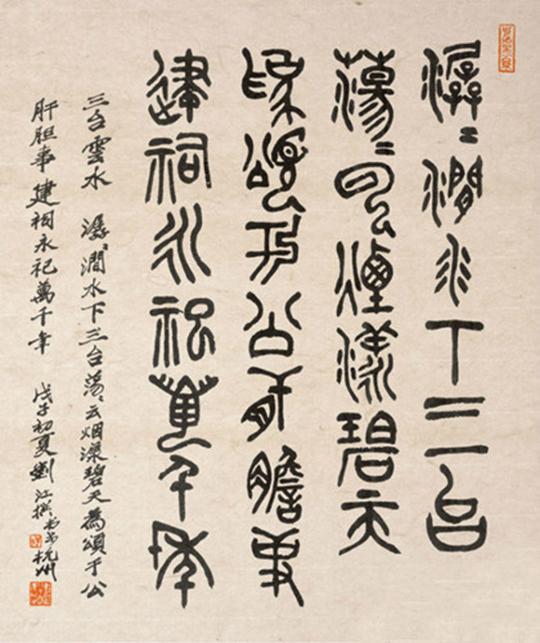 潺〻澗水下三台
蕩〻云煙漾碧天
為頌于公肝膽事
建祠永祀萬千年
三台雲水 潺〻澗水下三台蕩〻云烟漾碧天為頌于公
肝胆事建祠永祀萬千年 戊子初夏劉江撰书于杭州